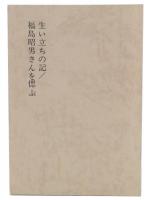 生い立ちの記/
福島昭男さんを偲ぶ